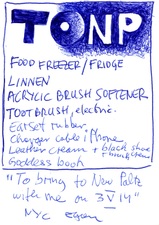 TONP
FOOD FREEZER/FRIDGE
LINNEN
ACRYLIC BRUSH SOFTENER
TOOTBRUSH, electric.
Earset rubber.
Charger cable iPhone
Leather cream + black shoe
Goddess book
"To bring to New Paltz
with me on 3 V 14"
NYC